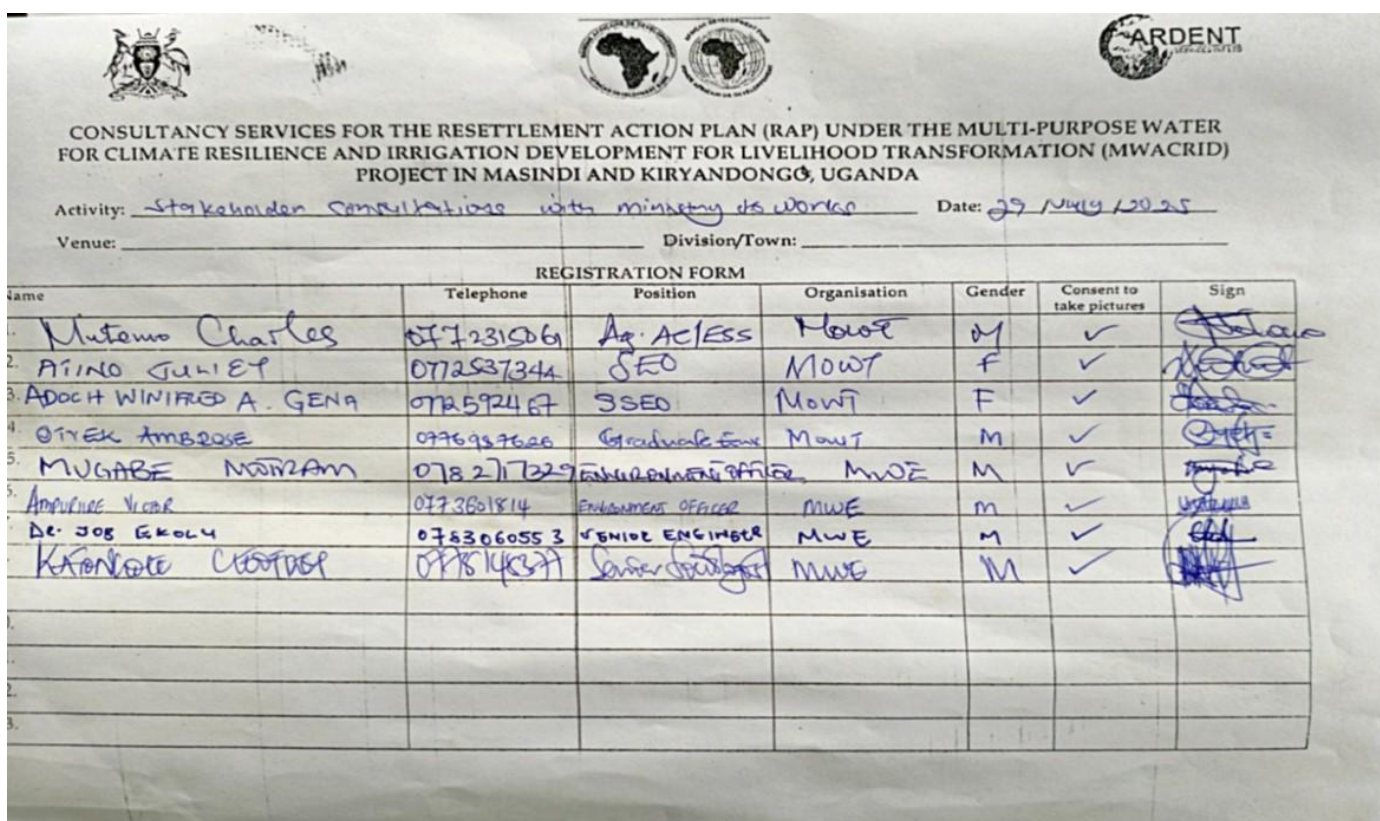 ARDENT
CONSULTANCY SERVICES FOR THE RESETTLEMENT ACTION PLAN (RAP) UNDER THE MULTI-PURPOSE WATER
FOR CLIMATE RESILIENCE AND IRRIGATION DEVELOPMENT FOR LIVELIHOOD TRANSFORMATION (MWACRID)
PROJECT IN MASINDI AND KIRYANDONGO, UGANDA
Activity: Stakeholder Consultations with ministry of Works Date: 29 /July /2025
Venue: Division/Town:
REGISTRATION FORM
Name Telephone Position Organisation Gender Consent to take pictures Sign
Mutemo Charles 0772315061 Ag. AC/ESS MoWT M ✓
2. ATINO JULIET 0772537344 SEO MOWT F ✓
3. ADOCH WINIFRED A. GENA 0772592467 SSEO MOWT F ✓
OTYEK AMBROSE 0776987626 Graduate MOWT M ✓
5. MUGABE 0782717329 ENVIRONMENT OFFICER MWE M ✓
VICTOR 0773601814 ENVIRONMENT OFFICER MWE M ✓
Dr. JOB EKOLU 0783060553 SENIOR ENGINEER MWE M ✓
0778148377 Senior MWE M ✓
2
3.